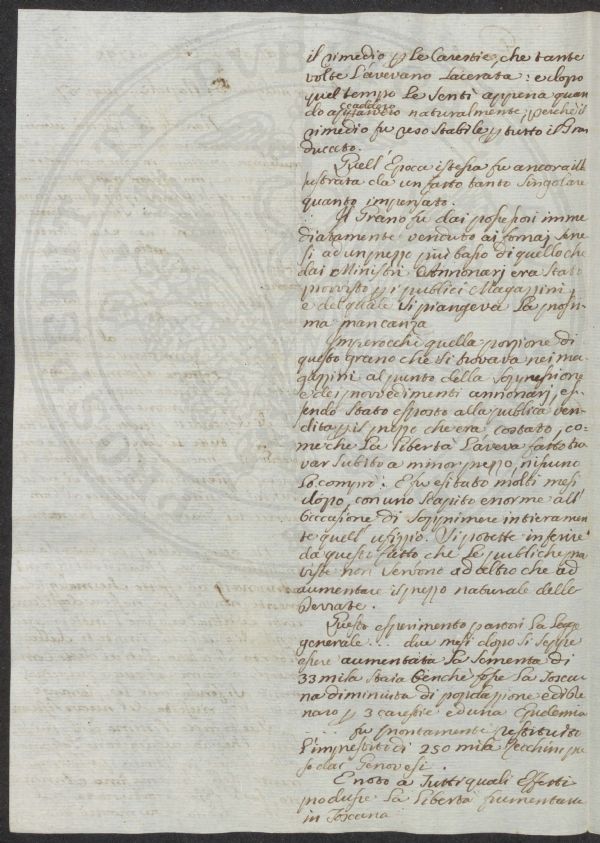 il rimedio p le Carestie, che tante
volte l'avevano lacerata: e dopo
quel tempo le sentì appena quan
do accaddero naturalmente, perchè il
rimedio fu reso stabile p tutto il Gran
ducato.
Quell'Epoca istessa fu ancora illu
strata da un fatto tanto singolare
quanto impensato.
Il Grano fu dai possessori imme
diatamente venduto ai fornaj
si ad un prezzo più basso di quello che
dai Ministri Annonarj era stato
provvisto p i publici Magazzini
e del quale si piangeva la prossi-
ma mancanza
Imperocchè quella porzione di
questo grano che si trovava nei ma
gazzini al punto della soppressione
e dei provvedimenti annonarj, es-
sendo stato esposto alla publica ven
dita p il prezzo che era costato, co-
me che la libertà l'aveva fatto tro
var subito a minor prezzo, nissuno
lo comprò. E fu esitato molti mesi
dopo, con uno scapito enorme all'
occasione di sopprimere intieramen
te quell'ufizzio. Si potette inferire
da questo fatto che le publiche prov
viste non servono ad altro che ad
aumentare il prezzo naturale delle
derrate.
Questo esperimento partorì la legge
generale ... due mesi dopo si seppe
essere aumentata la sementa di
33 mila staia benchè fosse la Tosca
na diminuita di popolazione e di de
naro p 3 carestie ed una Epidemia
... fu prontamente restituito
l'imprestito di 250 mila Zecchini pre
so dai Genovesi.
È noto a Tutti quali Effetti
produsse la libertà frumentaria
in Toscana